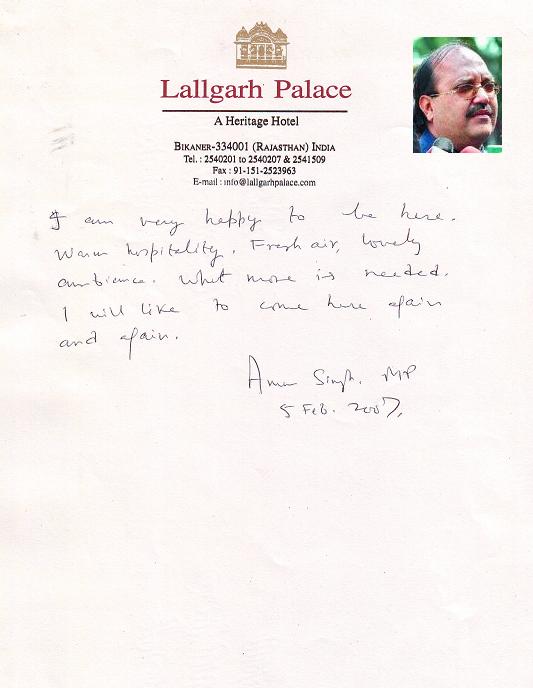 Lallgarh Palace
A Heritage Hotel
BIKANER-334001 (RAJASTHAN) INDIA
Tel. : 2540201 to 2540207 & 2541509
Fax : 91-151-2523963
E-mail : info@lallgarhpalace.com
I am very happy to be here.
Warm hospitality. Fresh air, lovely
ambience. What more is needed.
I will like to come here again
and again.
Amar Singh. MP
5 Feb. 2007.